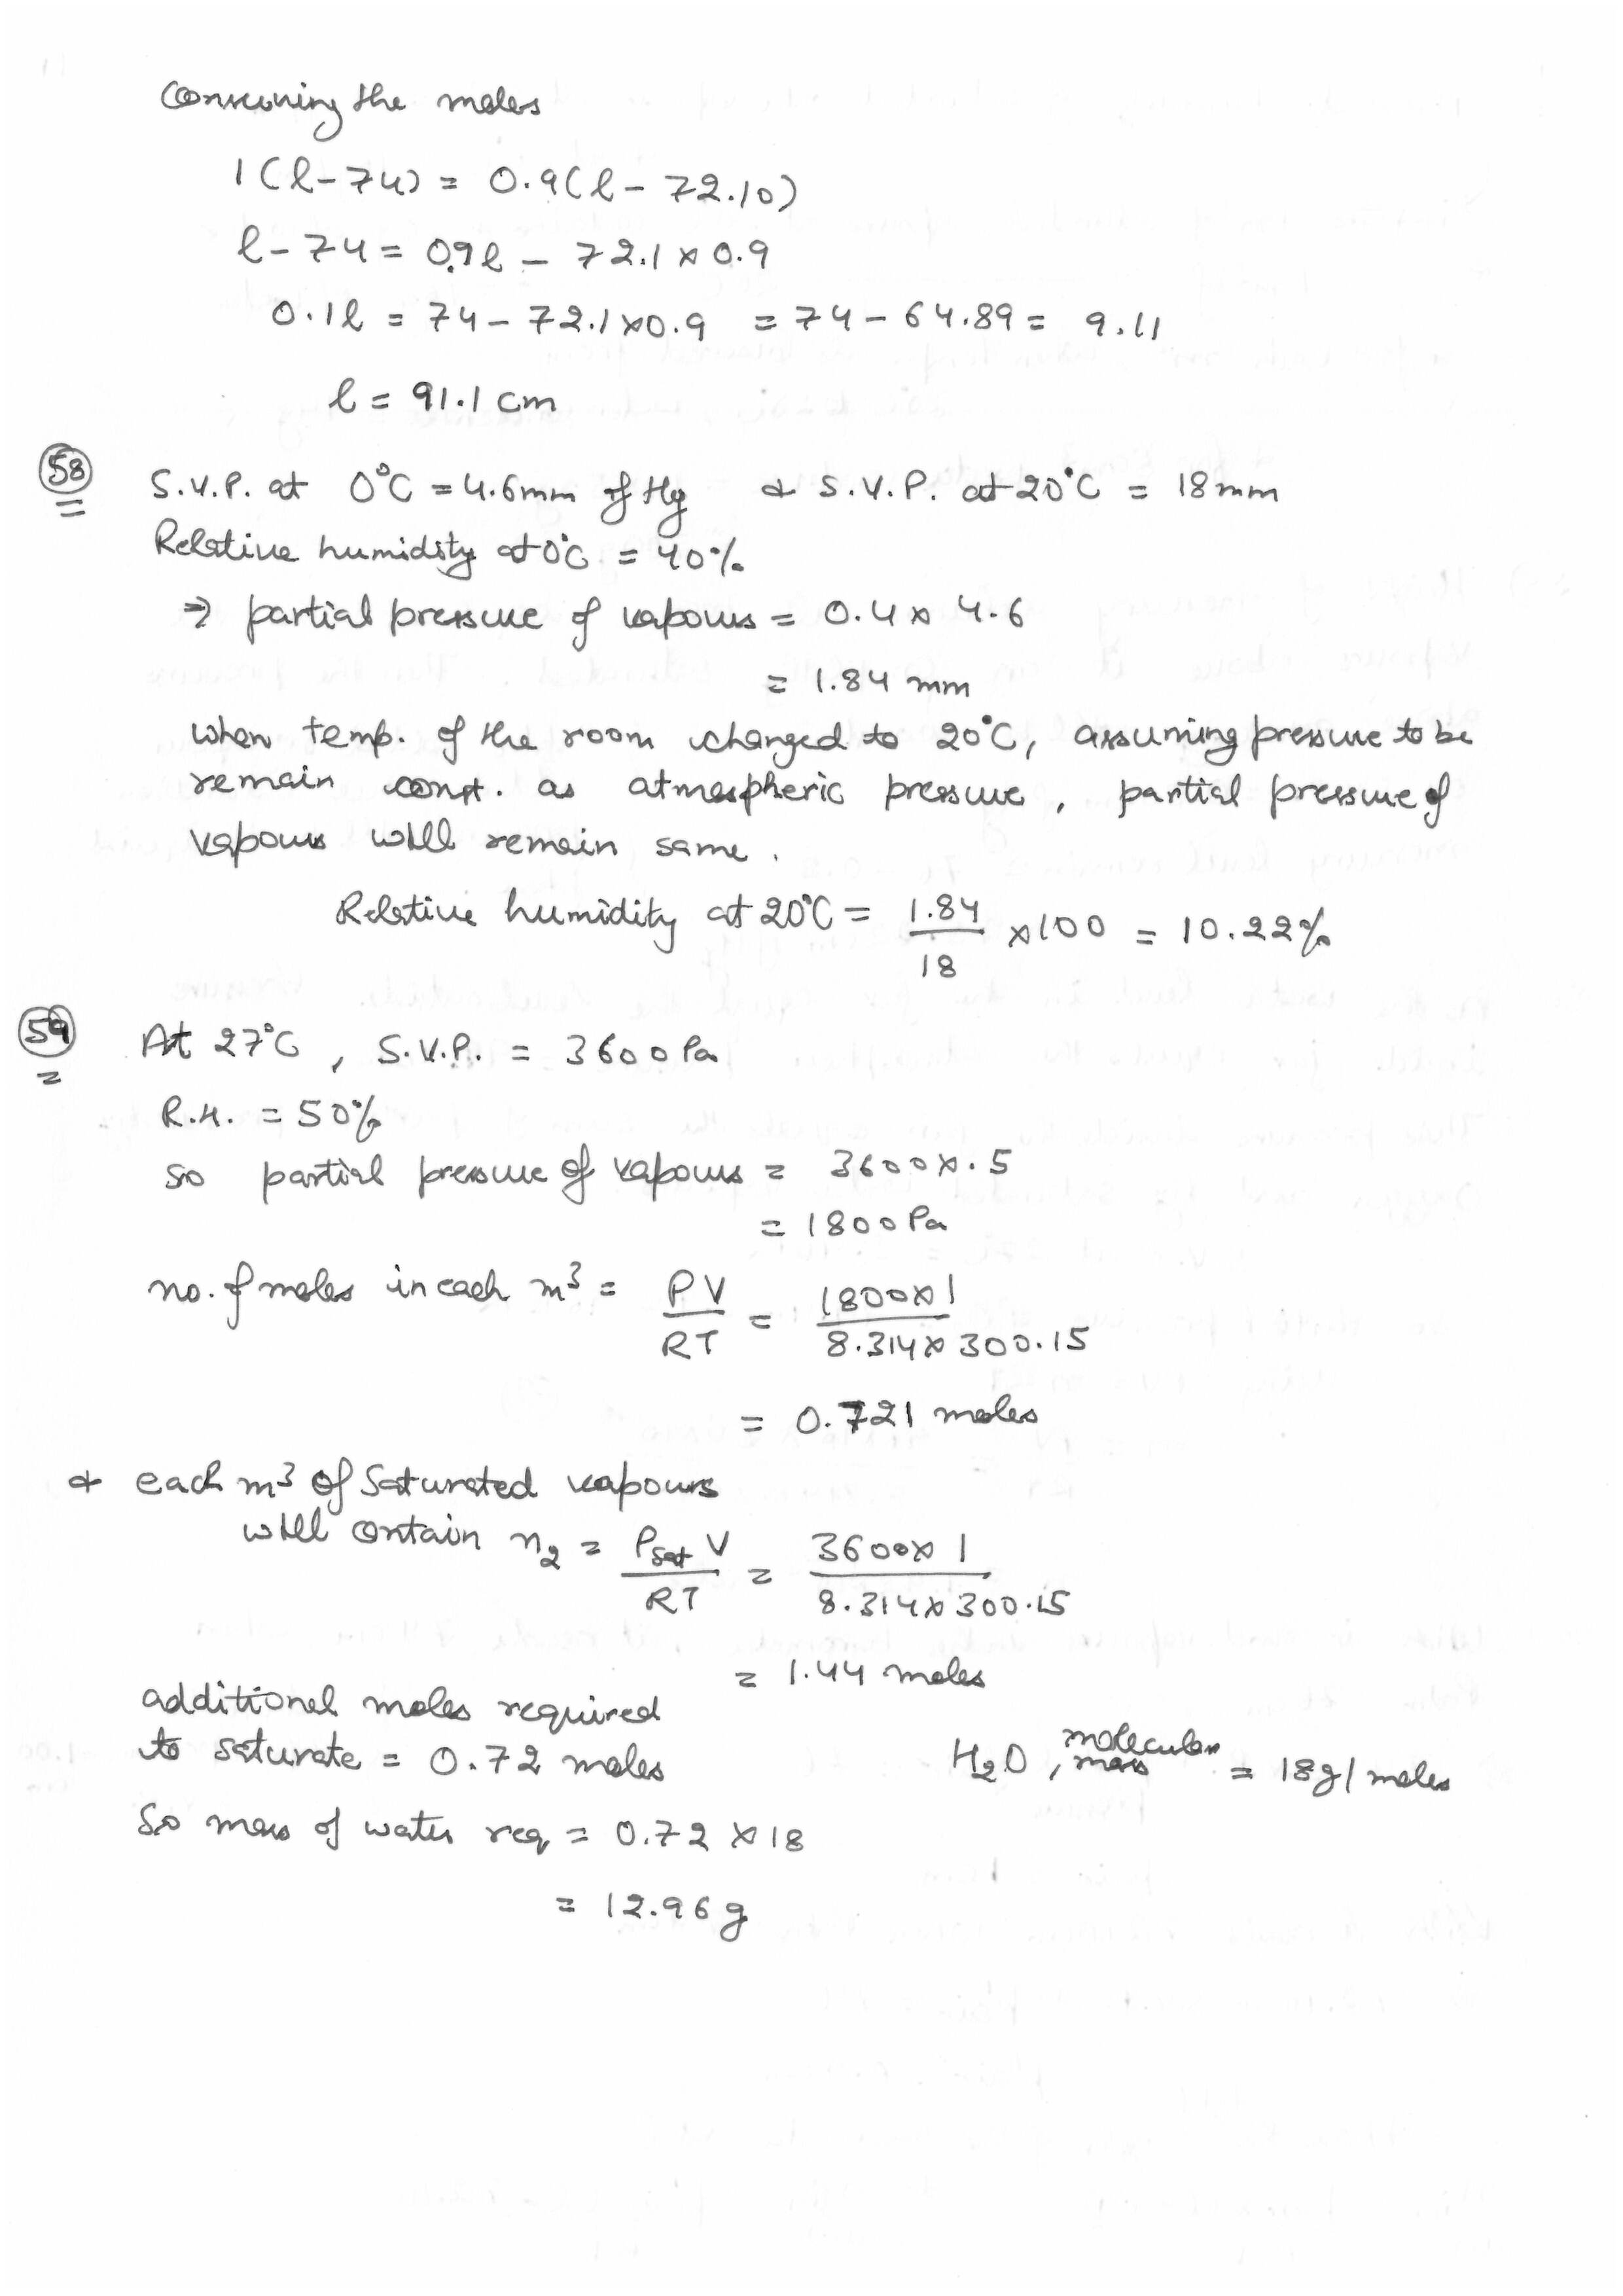 Conserving the moles
1(l-74) = 0.9(l - 72.10)
l - 74 = 0.9l - 72.1 × 0.9
0.1l = 74 - 72.1×0.9 = 74 - 64.89 = 9.11
l = 91.1 cm
58 S.V.P. at 0°C = 4.6mm of Hg & S.V.P. at 20°C = 18mm
Relative humidity at 0°C = 40%
⇒ partial pressure of vapours = 0.4 × 4.6
= 1.84 mm
when temp. of the room changed to 20°C, assuming pressure to be
remain const. as atmospheric pressure, partial pressure of
vapours will remain same.
Relative humidity at 20°C = 1.84/18 × 100 = 10.22%
59 At 27°C, S.V.P. = 3600 Pa
R.H. = 50%
so partial pressure of vapours = 3600×.5
= 1800 Pa
no. of moles in each m³ = PV/RT = 1800×1/8.314×300.15
= 0.721 moles
& each m³ of Saturated vapours
will contain n₂ = Psat V/RT = 3600×1/8.314×300.15
= 1.44 moles
additional moles required
to saturate = 0.72 moles H₂O, molecular mass = 18g/moles
So mass of water req = 0.72 × 18
= 12.96 g